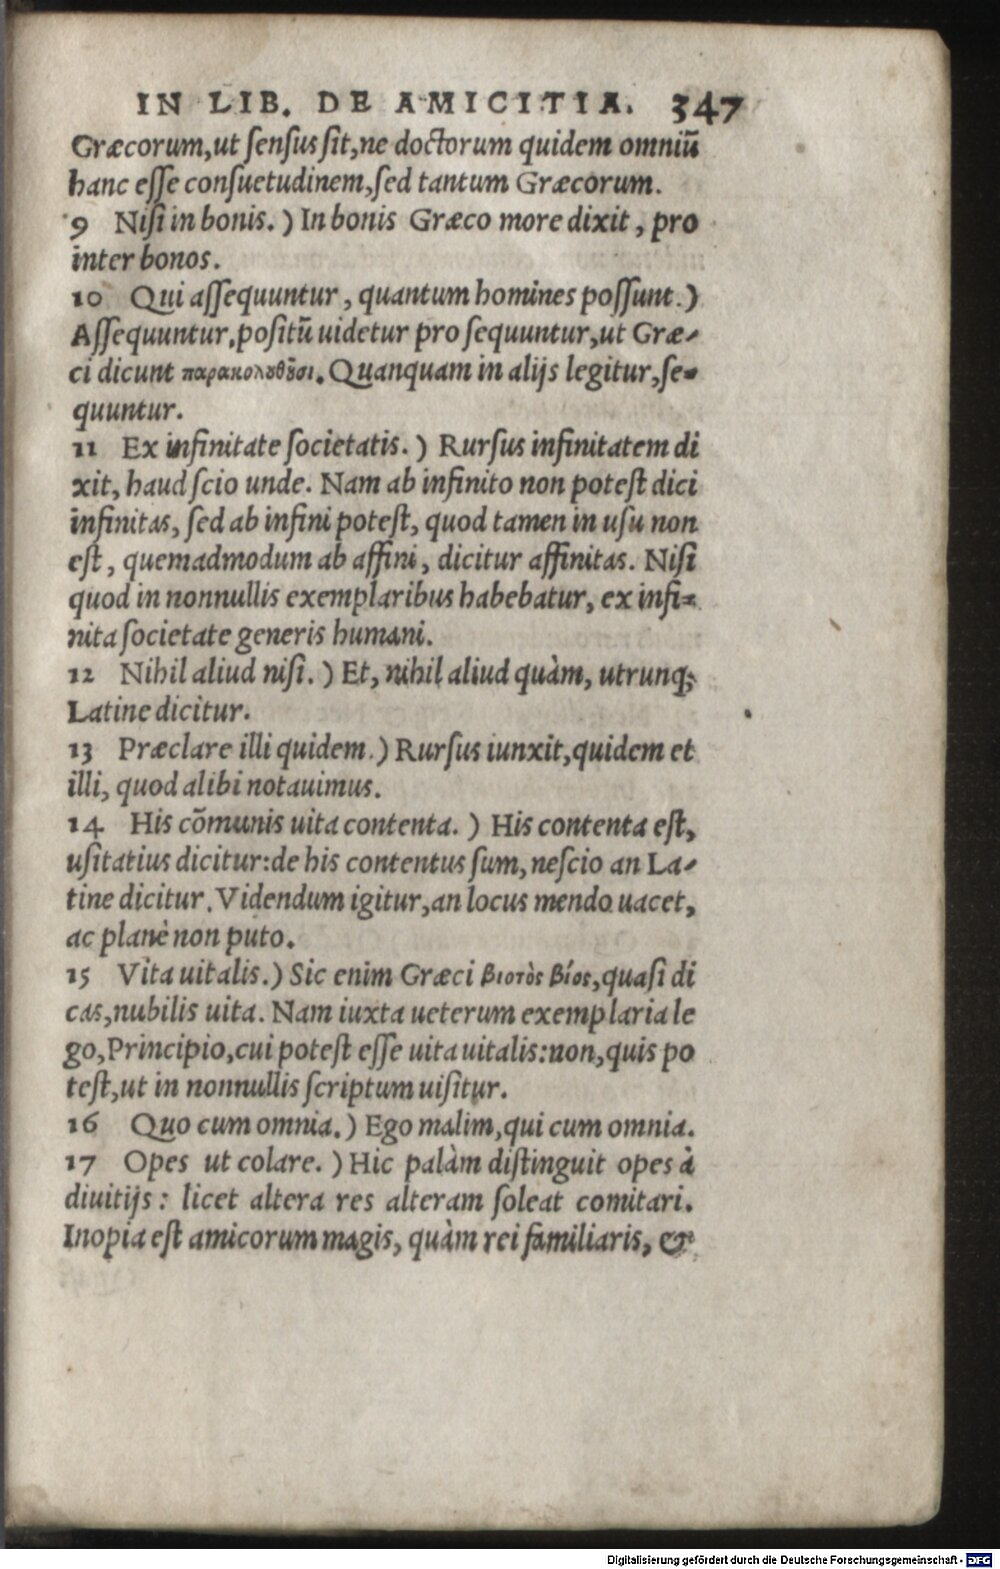 IN LIB. DE AMICITIA. 347
Græcorum, ut sensus sit, ne doctorum quidem omniũ
hanc esse consuetudinem, sed tantum Græcorum.
9 Nisi in bonis.) In bonis Græco more dixit, pro
inter bonos.
10 Qui assequuntur, quantum homines possunt.)
Assequuntur, positũ uidetur pro sequuntur, ut Græ-
ci dicunt παρακολουθοῦσι. Quanquam in alijs legitur, se-
quuntur.
11 Ex infinitate societatis.) Rursus infinitatem di
xit, haud scio unde. Nam ab infinito non potest dici
infinitas, sed ab infini potest, quod tamen in usu non
est, quemadmodum ab affini, dicitur affinitas. Nisi
quod in nonnullis exemplaribus habebatur, ex infi-
nita societate generis humani.
12 Nihil aliud nisi.) Et, nihil aliud quàm, utrunq;
Latine dicitur.
13 Præclare illi quidem.) Rursus iunxit, quidem et
illi, quod alibi notauimus.
14 His cõmunis uita contenta.) His contenta est,
usitatius dicitur: de his contentus sum, nescio an La-
tine dicitur. Videndum igitur, an locus mendo uacet,
ac planè non puto.
15 Vita uitalis.) Sic enim Græci βιοτὸς βίος, quasi di
cas, nubilis uita. Nam iuxta ueterum exemplaria le
go, Principio, cui potest esse uita uitalis: non, quis po
test, ut in nonnullis scriptum uisitur.
16 Quo cum omnia.) Ego malim, qui cum omnia.
17 Opes ut colare.) Hic palàm distinguit opes à
diuitijs: licet altera res alteram soleat comitari.
Inopia est amicorum magis, quàm rei familiaris, &
Digitalisierung gefördert durch die Deutsche Forschungsgemeinschaft - DFG